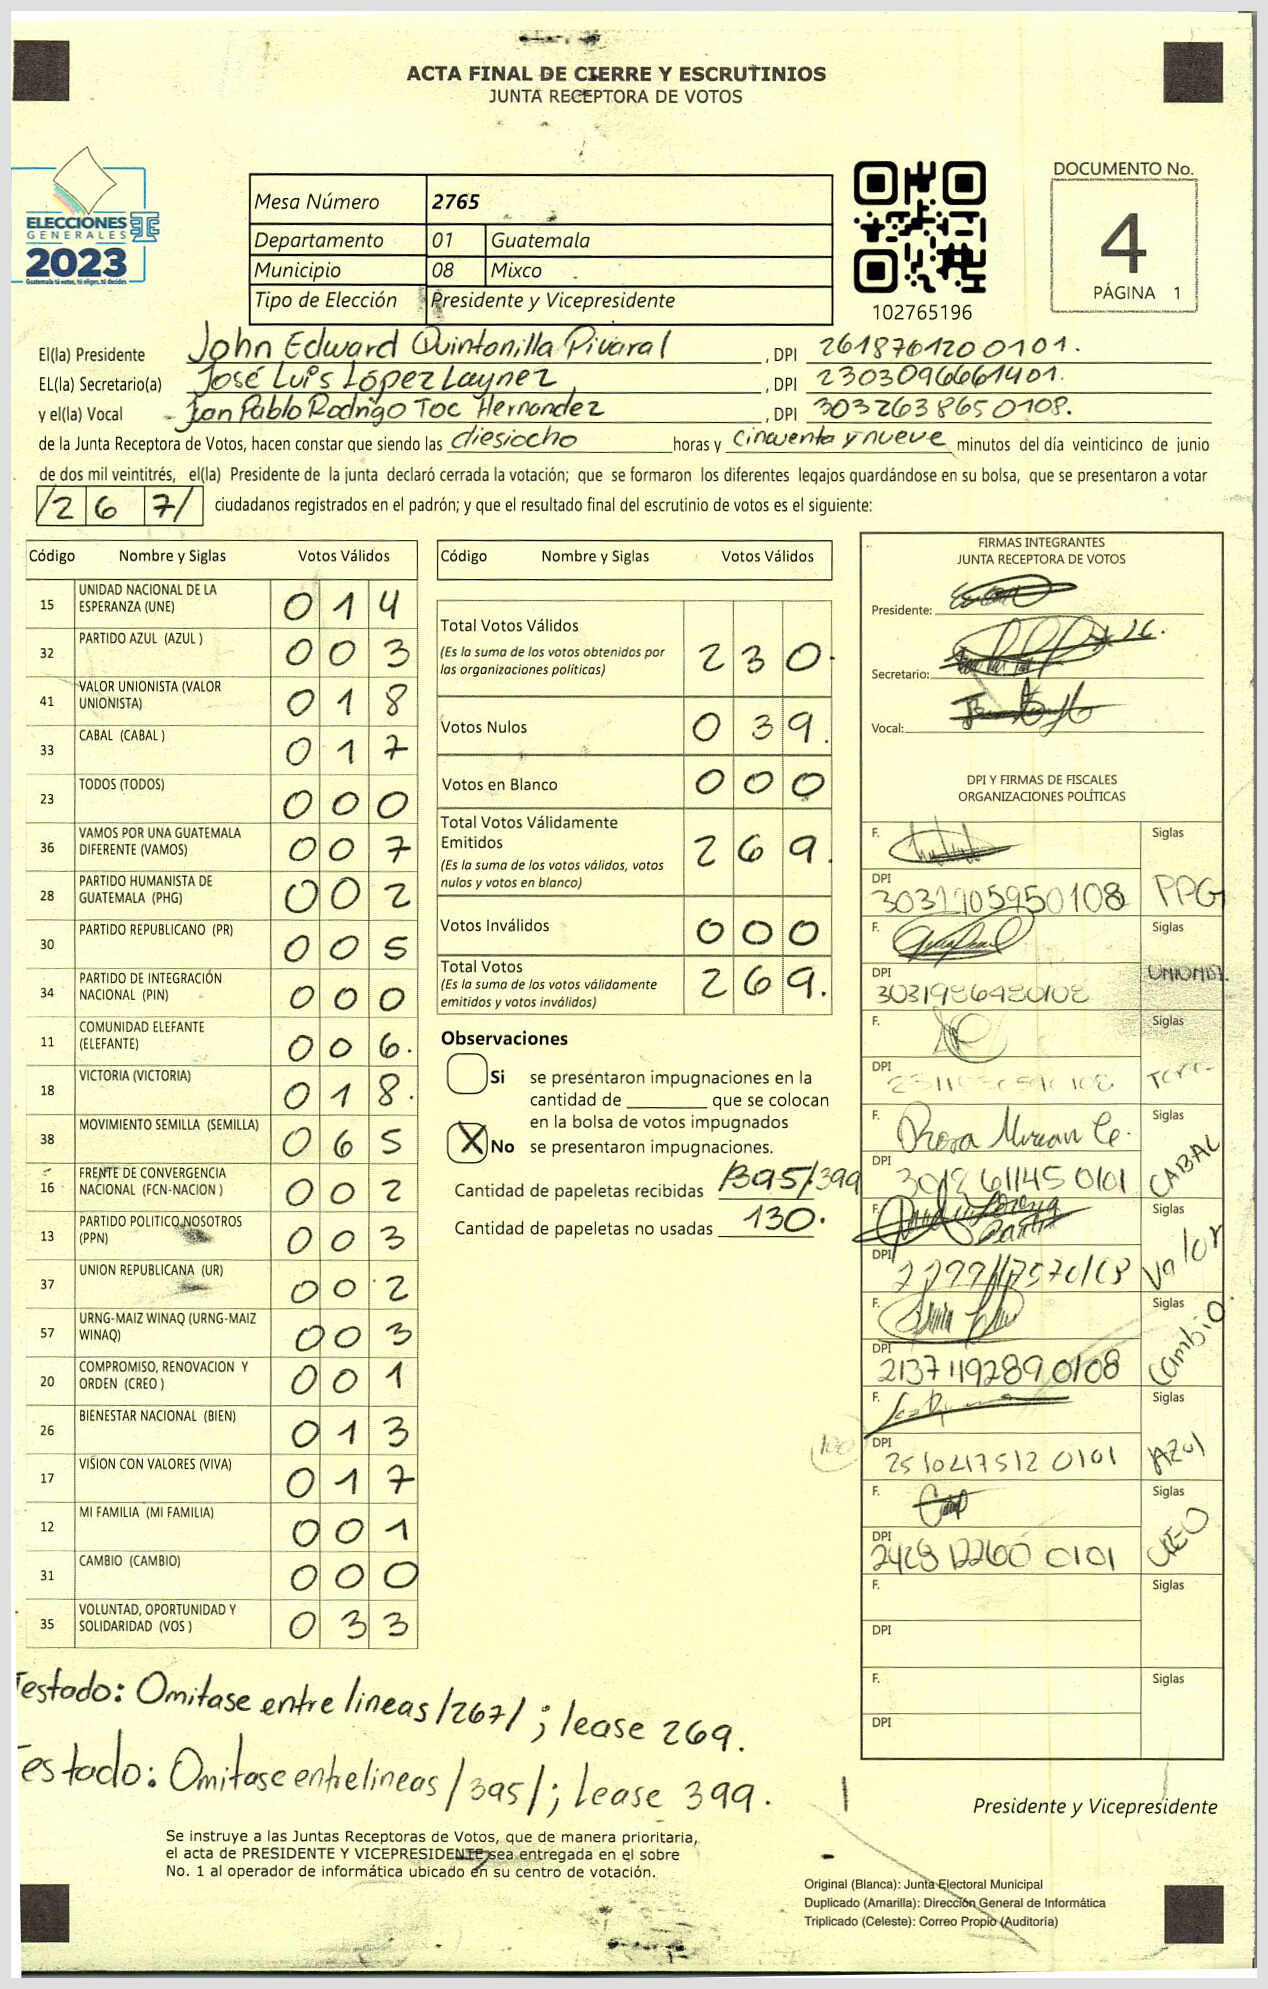 ACTA FINAL DE CIERRE Y ESCRUTINIOS
JUNTA RECEPTORA DE VOTOS
ELECCIONES
GENERALES
2023
Guatemala tú votas, tú eliges, tú decides
Mesa Número 2765
Departamento 01 Guatemala
Municipio 08 Mixco
Tipo de Elección Presidente y Vicepresidente
102765196
DOCUMENTO No.
4
PÁGINA 1
El(la) Presidente John Edward Quintanilla Pivaral , DPI 2618761200101.
EL(la) Secretario(a) José Luis López Laynez , DPI 2303096661401.
y el(la) Vocal Jan Pablo Rodrigo Toc Hernandez , DPI 3032638650108.
de la Junta Receptora de Votos, hacen constar que siendo las diesiocho horas y cincuenta y nueve minutos del día veinticinco de junio
de dos mil veintitrés, el(la) Presidente de la junta declaró cerrada la votación; que se formaron los diferentes legajos guardándose en su bolsa, que se presentaron a votar
/267/ ciudadanos registrados en el padrón; y que el resultado final del escrutinio de votos es el siguiente:
Código Nombre y Siglas Votos Válidos
15 UNIDAD NACIONAL DE LA ESPERANZA (UNE) 014
32 PARTIDO AZUL (AZUL ) 003
41 VALOR UNIONISTA (VALOR UNIONISTA) 018
33 CABAL (CABAL ) 017
23 TODOS (TODOS) 000
36 VAMOS POR UNA GUATEMALA DIFERENTE (VAMOS) 007
28 PARTIDO HUMANISTA DE GUATEMALA (PHG) 002
30 PARTIDO REPUBLICANO (PR) 005
34 PARTIDO DE INTEGRACIÓN NACIONAL (PIN) 000
11 COMUNIDAD ELEFANTE (ELEFANTE) 006.
18 VICTORIA (VICTORIA) 018.
38 MOVIMIENTO SEMILLA (SEMILLA) 065
16 FRENTE DE CONVERGENCIA NACIONAL (FCN-NACION ) 002
13 PARTIDO POLITICO NOSOTROS (PPN) 003
37 UNION REPUBLICANA (UR) 002
57 URNG-MAIZ WINAQ (URNG-MAIZ WINAQ) 003
20 COMPROMISO, RENOVACION Y ORDEN (CREO ) 001
26 BIENESTAR NACIONAL (BIEN) 013
17 VISION CON VALORES (VIVA) 017
12 MI FAMILIA (MI FAMILIA) 001
31 CAMBIO (CAMBIO) 000
35 VOLUNTAD, OPORTUNIDAD Y SOLIDARIDAD (VOS ) 033
Código Nombre y Siglas Votos Válidos
Total Votos Válidos 230.
(Es la suma de los votos obtenidos por
las organizaciones políticas)
Votos Nulos 039.
Votos en Blanco 000
Total Votos Válidamente
Emitidos 269.
(Es la suma de los votos válidos, votos
nulos y votos en blanco)
Votos Inválidos 000
Total Votos 269.
(Es la suma de los votos válidamente
emitidos y votos inválidos)
Observaciones
Si se presentaron impugnaciones en la
cantidad de ________ que se colocan
en la bolsa de votos impugnados
X No se presentaron impugnaciones.
Cantidad de papeletas recibidas /395/399
Cantidad de papeletas no usadas 130.
FIRMAS INTEGRANTES
JUNTA RECEPTORA DE VOTOS
Presidente:
Secretario:
Vocal:
DPI Y FIRMAS DE FISCALES
ORGANIZACIONES POLÍTICAS
F. Siglas
DPI 3031905950108 PPG
F. Siglas
DPI 3031986480108
F. Siglas
DPI
F. Siglas
DPI CABAL
F. Siglas
DPI Valor
F. Siglas
DPI 2137119289 0108 Cambio
F. Siglas
DPI 2510417512 0101 AZul
F. Siglas
DPI 2428 12260 0101 CREO
F. Siglas
DPI
F. Siglas
DPI
Testado: Omitase entre lineas /267/ ; lease 269.
Testado: Omitase entrelineas /395/; lease 399.
Presidente y Vicepresidente
Se instruye a las Juntas Receptoras de Votos, que de manera prioritaria,
el acta de PRESIDENTE Y VICEPRESIDENTE sea entregada en el sobre
No. 1 al operador de informática ubicado en su centro de votación.
Original (Blanca): Junta Electoral Municipal
Duplicado (Amarilla): Dirección General de Informática
Triplicado (Celeste): Correo Propio (Auditoría)